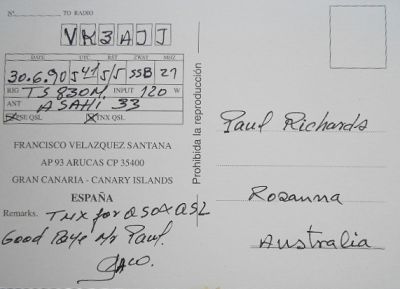 Nº TO RADIO
VK3AJJ
DATE UTC RST 2WAY MHZ
30.6.90 541 5/5 SSB 27
RIG TS 830M. INPUT 120 W
ANT ASAHI 33
PSE QSL TNX QSL
FRANCISCO VELAZQUEZ SANTANA
AP 93 ARUCAS CP 35400
GRAN CANARIA - CANARY ISLANDS
ESPAÑA
Remarks. TNX for QSO QSL
Good Bye Mr Paul.
Prohibida la reproducción
Paul Richards
Rosanna
Australia